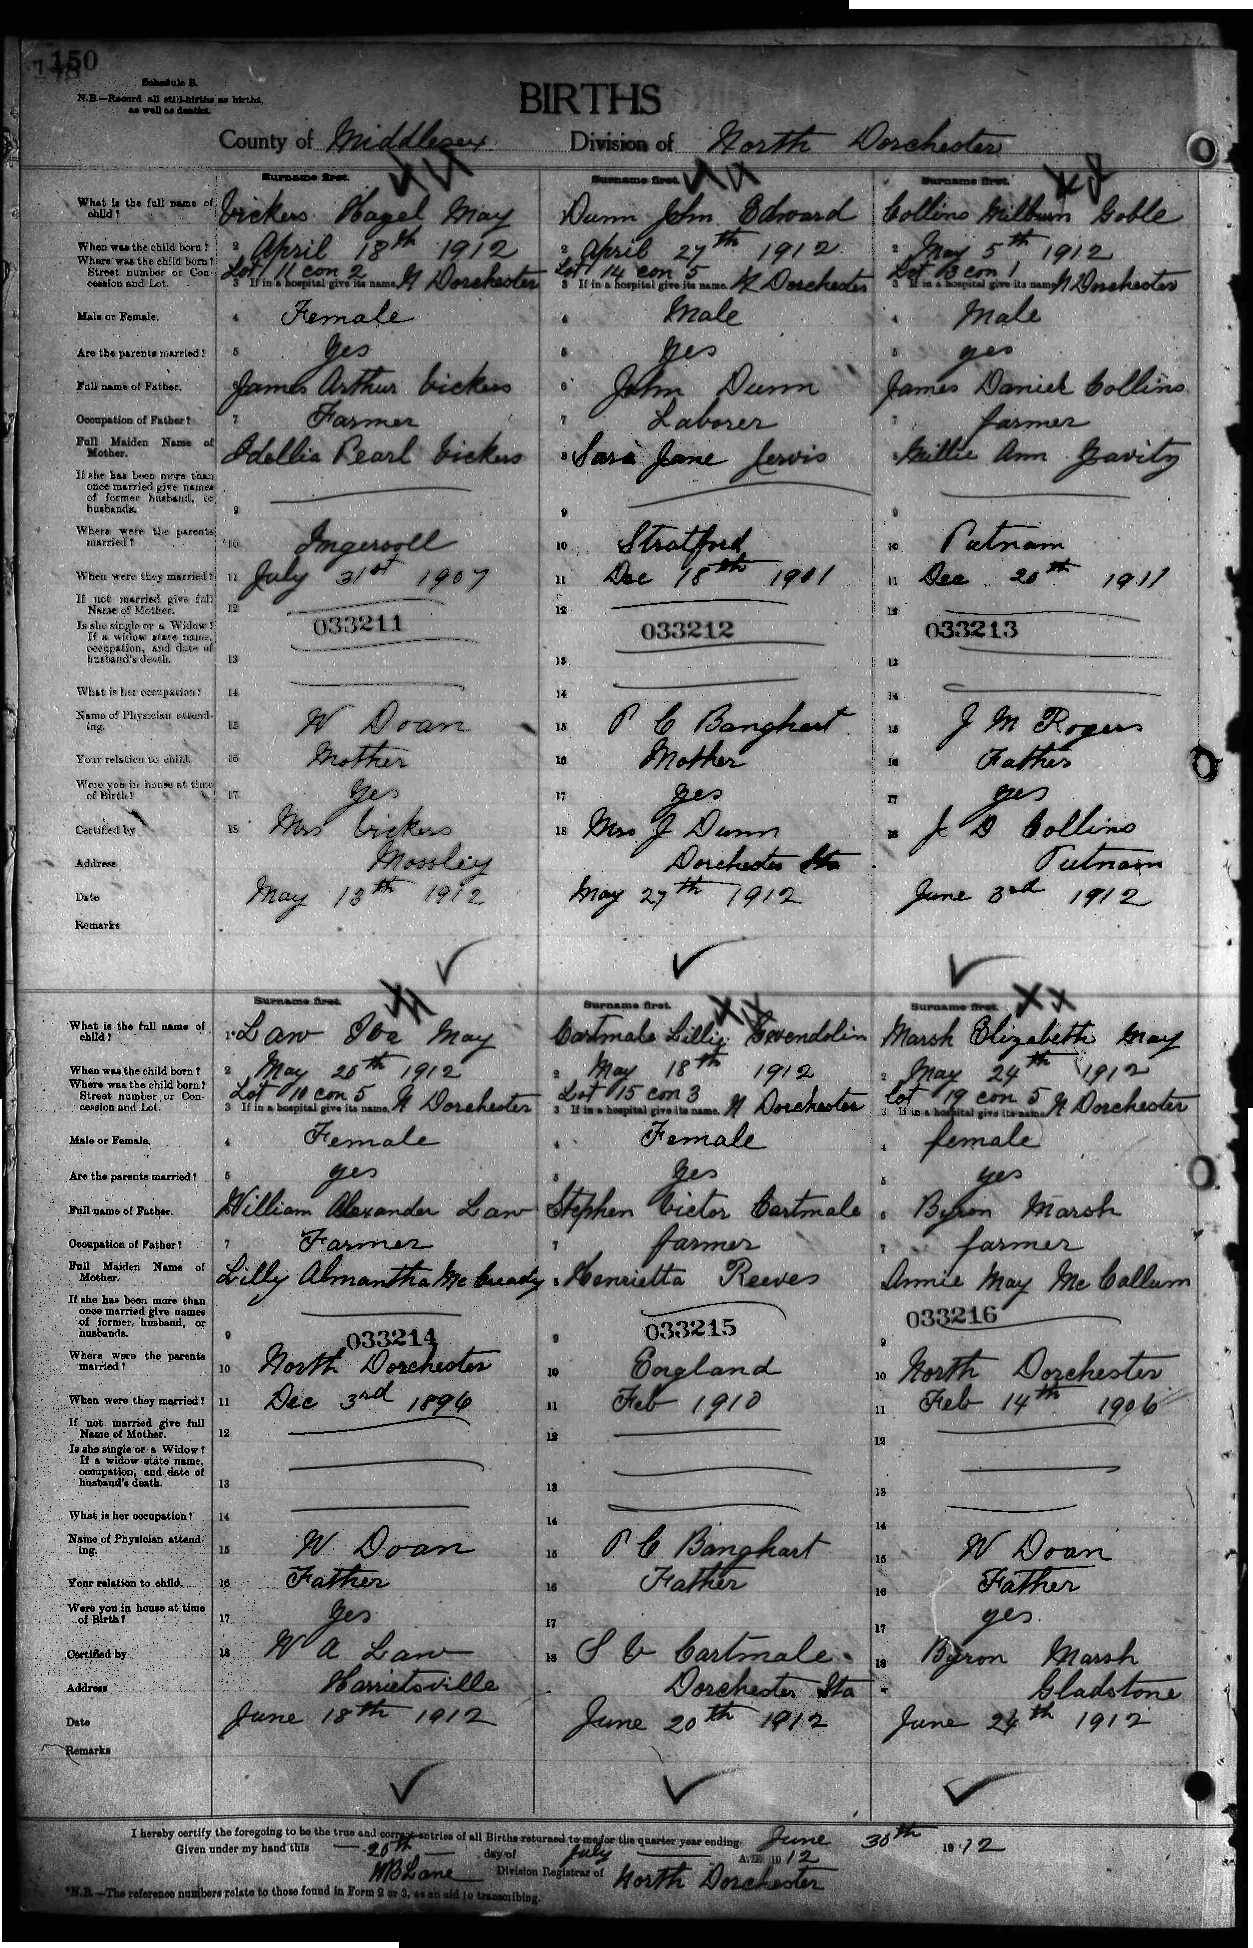 150
Schedule B.
N.B.—Record all still-births as births, as well as deaths.
BIRTHS
County of Middlesex Division of North Dorchester
Surname first. Surname first. Surname first.
What is the full name of child? Vickers Hazel May Dunn John Edward Collins Milburn Goble
When was the child born? 2 April 18th 1912 2 April 27th 1912 2 May 5th 1912
Where was the child born? Street number or Concession and Lot. Lot 11 con 2 Lot 14 con 5 Lot 13 con 1
3 If in a hospital give its name. N Dorchester 3 If in a hospital give its name. N Dorchester 3 If in a hospital give its name. N Dorchester
Male or Female. 4 Female 4 Male 4 Male
Are the parents married? 5 yes 5 yes 5 yes
Full name of Father. James Arthur Vickers 6 John Dunn James Daniel Collins
Occupation of Father? 7 Farmer 7 Laborer 7 farmer
Full Maiden Name of Mother. Idellia Pearl Vickers 8 Sara Jane Jervis Millie Ann Gavity
If she has been more than once married give names of former husband, or husbands. 9 9 9
Where were the parents married? 10 Ingersoll 10 Stratford 10 Putnam
When were they married? 11 July 31st 1907 11 Dec 18th 1901 11 Dec 20th 1911
If not married give full Name of Mother. 12 12 12
033211 033212 033213
Is she single or a Widow? If a widow state name, occupation, and date of husband's death. 13 13 13
What is her occupation? 14 14 14
Name of Physician attending. 15 W Doan 15 P C Banghart 15 J M Rogers
Your relation to child. 16 Mother 16 Mother 16 Father
Were you in house at time of Birth? 17 Yes 17 yes 17 yes
Certified by 18 Mrs Vickers 18 Mrs J Dunn 18 J D Collins
Address Mossley Dorchester Sta Putnam
Date May 13th 1912 May 27th 1912 June 3rd 1912
Remarks
Surname first. Surname first. Surname first.
What is the full name of child? 1 Law Iva May Cartmale Lilly Gwendolin Marsh Elizabeth May
When was the child born? 2 May 20th 1912 2 May 18th 1912 2 May 24th 1912
Where was the child born? Street number or Concession and Lot. Lot 10 con 5 Lot 15 con 3 Lot 19 con 5
3 If in a hospital give its name. N Dorchester 3 If in a hospital give its name. N Dorchester 3 If in a hospital give its name. N Dorchester
Male or Female. 4 Female 4 Female 4 female
Are the parents married? 5 yes 5 yes 5 yes
Full name of Father. William Alexander Law Stephen Victor Cartmale 6 Byron Marsh
Occupation of Father? 7 Farmer 7 farmer 7 farmer
Full Maiden Name of Mother. Lilly Almantha McCready 8 Henrietta Reeves Annie May McCallum
If she has been more than once married give names of former, husband, or husbands. 9 9 9
033214 033215 033216
Where were the parents married? 10 North Dorchester 10 England 10 North Dorchester
When were they married? 11 Dec 3rd 1896 11 Feb 1910 11 Feb 14th 1906
If not married give full Name of Mother. 12 12 12
Is she single or a Widow? If a widow state name, occupation, and date of husband's death. 13 13 13
What is her occupation? 14 14 14
Name of Physician attending. 15 W Doan 15 P C Banghart 15 W Doan
Your relation to child. 16 Father 16 Father 16 Father
Were you in house at time of Birth? 17 Yes 17 17 yes
Certified by 18 W A Law 18 S V Cartmale 18 Byron Marsh
Address Harrietsville Dorchester Sta Gladstone
Date June 18th 1912 June 20th 1912 June 24th 1912
Remarks
I hereby certify the foregoing to be the true and correct entries of all Births returned to me for the quarter year ending June 30th 1912
Given under my hand this 20th day of July A.D. 1912
W B Lane Division Registrar of North Dorchester
*N.B.—The reference numbers relate to those found in Form 2 or 3, as an aid to transcribing.